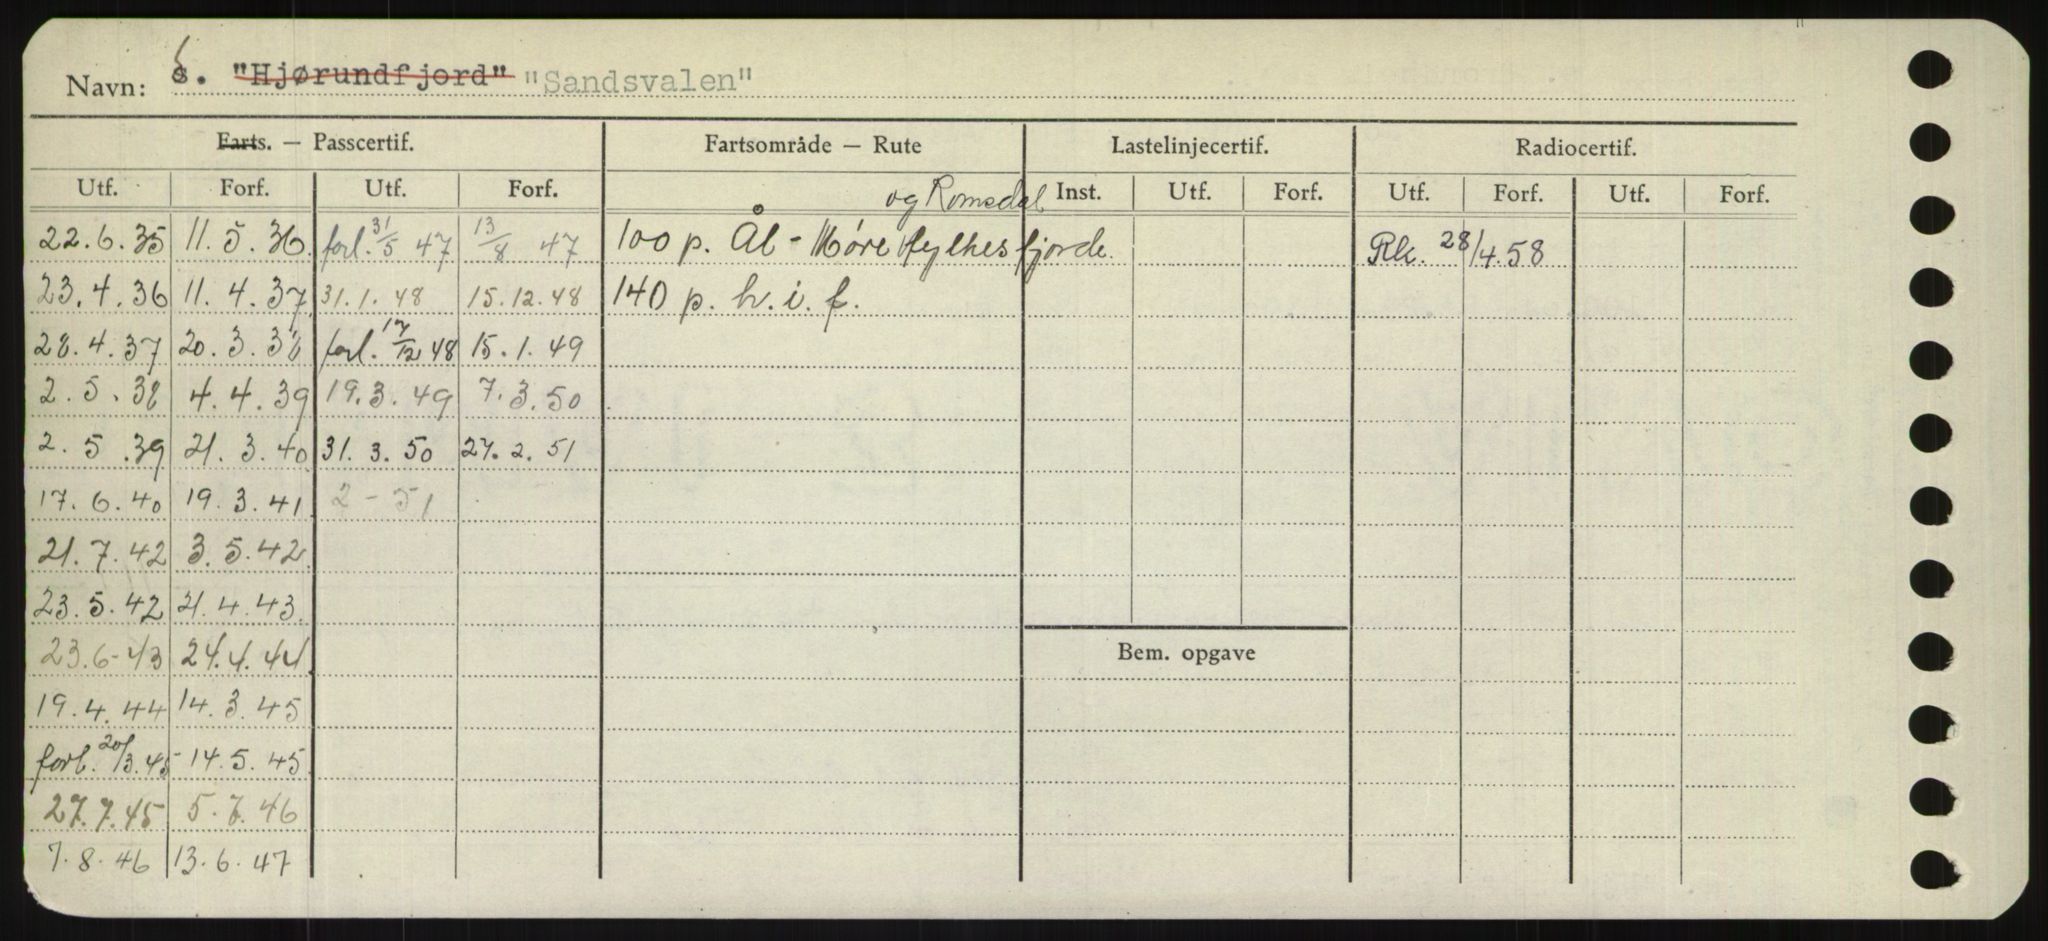 Navn: s. "Hjørundfjord" "Sandsvalen"
Farts. — Passcertif. Fartsområde — Rute Lastelinjecertif. Radiocertif.
Utf. Forf. Utf. Forf. Inst. Utf. Forf. Utf. Forf. Utf. Forf.
og Romsdal
22.6.35 11.5.36. forl. 31/5 47 13/8 47 100 p. Ål - Møre fylkes fjorde. Rk. 28/4.58
23.4.36 11.4.37 31.1.48 15.12.48 140 p. h.i.f.
28.4.37 20.3.38 forl. 17/12 48 15.1.49
2.5.38 4.4.39 19.3.49 7.3.50
2.5.39 21.3.40 31.3.50 27.2.51
17.6.40 19.3.41 2 - 51
21.7.42 3.5.42.
23.5.42 21.4.43.
23.6-43 24.4.44
19.4.44 14.3.45
forl. 20/3.45 - 14.5.45
27.7.45 5.7.46
7.8.46 13.6.47
Bem. opgave